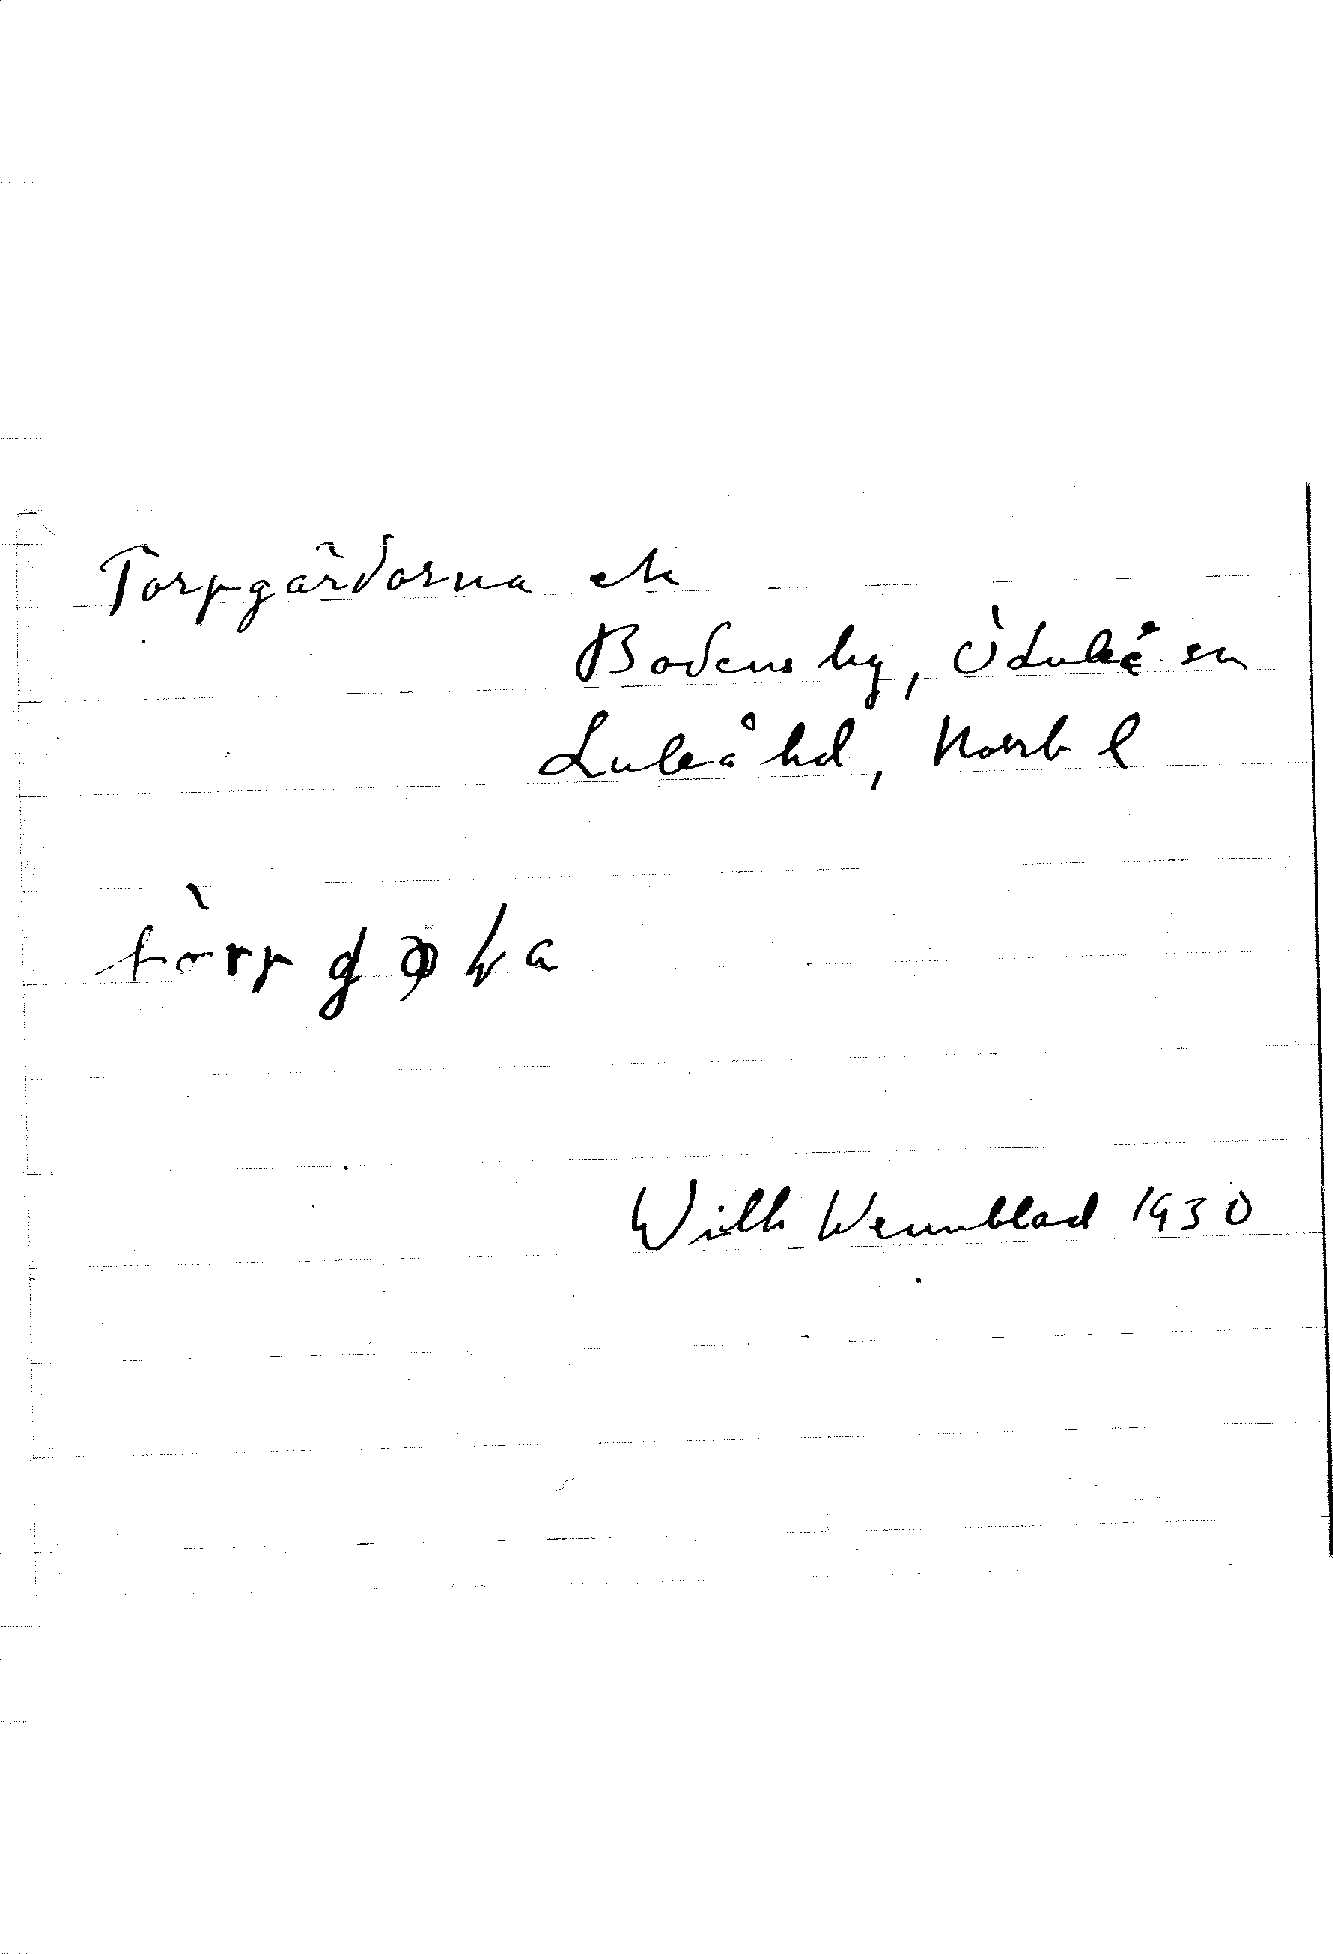 Torpgärdorna ek
Bodens by, ÖLuleå sn
Luleå hd, Norrb l
Wilh Wennblad 1930